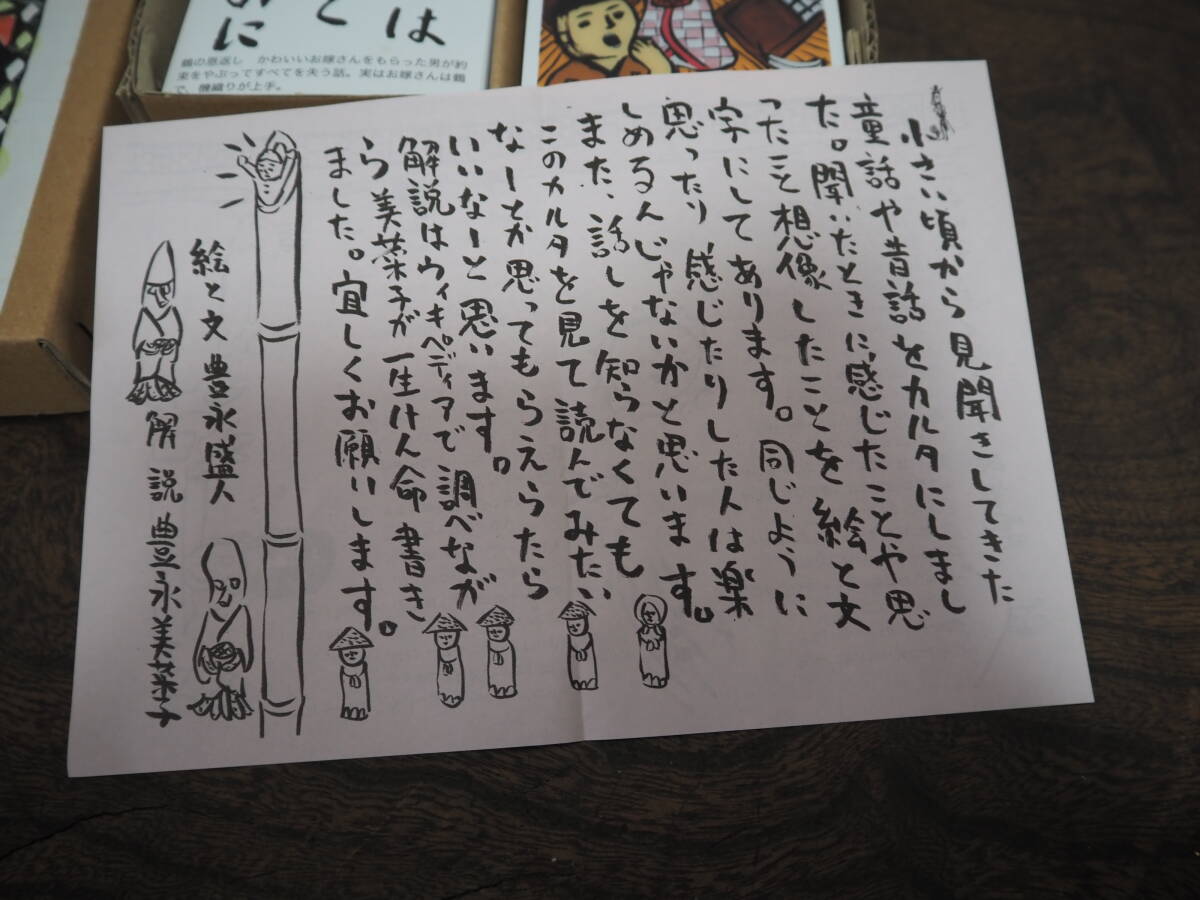 はと
おに
鶴の恩返し　かわいいお嫁さんをもらった男が約
束をやぶってすべてを失う話。実はお嫁さんは鶴
で、機織りが上手。
小さい頃から見聞きしてきた
童話や昔話をカルタにしまし
た。聞いたときに感じたことや思
ったこと想像したことを絵と文
字にしてあります。同じように
思ったり感じたりした人は楽
しめるんじゃないかと思います。
また、話しを知らなくても
このカルタを見て読んでみたい
なーとか思ってもらえたら
いいなーと思います。
解説はウィキペディアで調べなが
ら美菜子が一生けん命書き
ました。宜しくお願いします。
絵と文 豊永盛人
解説 豊永美菜子